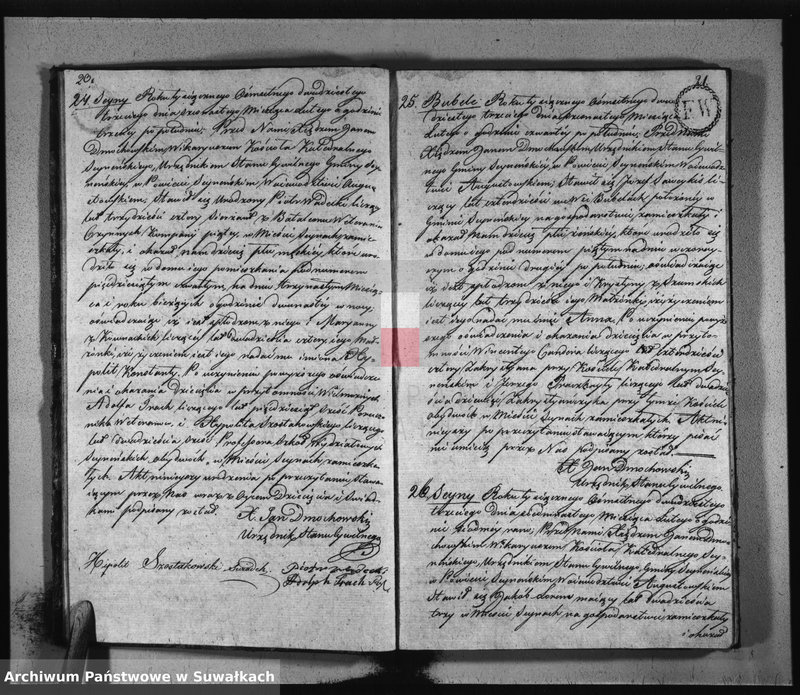 20.
24. Seyny Roku tysiącznego Osmsetnego dwudziestego
trzeciego dnia Miesiąca Lutego o godzinie
trzeciey po południu, Przed Nami Xiędzem Janem
Dmochowskim Wikaryuszem Kościoła Katedralnego
Seyneńskiego, Urzędnikiem Stanu Cywilnego Gminy Sey-
neńskiey, w Powiecie Seyneńskim Woiewództwie Augus-
towskim, Stawił się Urodzony Piotr liczący
lat trzydzieści cztery w Batalionie Weteranów
Czynnych Kompanij piątey w Mieście Seynach zamie-
szkały, i okazał nam dziecię płci męskiey, które uro-
dziło się w domu iego pomieszkania pod numerem
pięćdziesiątym czwartym, na dniu trzynastym Miesią-
ca i roku bieżących o godzinie dwunastey w nocy,
oświadczaiąc iż iest spłodzone z niego i Maryanny
z liczącey lat dwadzieścia cztery, iego Mał-
żonki, iż życzeniem iest iego nadać mu imiona Hy-
polit Konstanty. Po uczynieniu powyższego oświadcze-
nia i okazania Dziecięcia w przytomności
Adolfa Trach liczącego lat pięćdziesiąt sześć Porucz-
nika Weteranów, i Hippolita Szostakowskiego liczącego
lat dwadzieścia sześć Professora Szkół Wydziałowych
Seyneńskich, obydwoch w Mieście Seynach zamieszka-
łych. Akt ninieyszy urodzenia po przeczytaniu Stawa-
iącym przez Nas wraz z Oycem Dziecięcia i Świad-
kami podpisany został.
X. Jan Dmochowski
Urzędnik Stanu Cywilnego
Hipolit Szostakowski Swiadek.
Adolph Trach
21
FW
25. Bubele Roku tysiącznego Osmsetnego dwu-
dziestego trzeciego dnia Miesiąca
Lutego o godzinie czwartey po południu, Przed Nami
Xiędzem Janem Dmochowskim, Urzędnikiem Stanu Cywil-
nego Gminy Seyneńskiey, w Powiecie Seyneńskim Woiewódz-
twie Augustowskim, Stawił się Jozef li-
czący lat czterdzieści w Wsi Bubelach położoney w
Gminie Seyneńskiey na gospodarstwie zamieszkały i
okazał Nam dziecię płci żeńskiey, które urodziło się
w domu iego pod numerem piątym na dniu wczoray-
szym o godzinie drugiey po południu, oświadczaiąc
iż iest spłodzone z niego i Krystyny z
liczącey lat trzydzieści iego Małżonki, iż życzeniem
iest iego nadać mu imie Anna. Po uczynieniu powyż-
szego oświadczenia i okazania dziecięcia w przytom-
ności Wincentego liczącego lat
cztery Zakrystyana przy Kościele Katedralnym Sey-
neńskim i Jerzego liczącego lat dwadzie-
ścia dziewięć Zakrystyanika przy tymże Kościele
obydwoch w Mieście Seynach zamieszkałych. Akt ni-
nieyszy po przeczytaniu Stawaiącym, którzy pisać
nie umieią przez Nas podpisany został.
X. Jan Dmochowski
Urzędnik Stanu Cywilnego
26. Seyny Roku tysiącznego Osmsetnego dwudziestego
trzeciego dnia Miesiąca Lutego o godzi-
nie siodmey rano, Przed Nami Xiędzem Janem Dmo-
chowskim Wikaryuszem Kościoła Katedralnego Sey-
neńskiego, Urzędnikiem Stanu Cywilnego, Gminy Seyneńskiey
w Powiecie Seyneńskim Woiewództwie Augustowskim
Stawił się Jakob maiący lat dwadzieścia
trzy w Mieście Seynach na gospodarstwie zamieszkały
i okazał
Archiwum Państwowe w Suwałkach